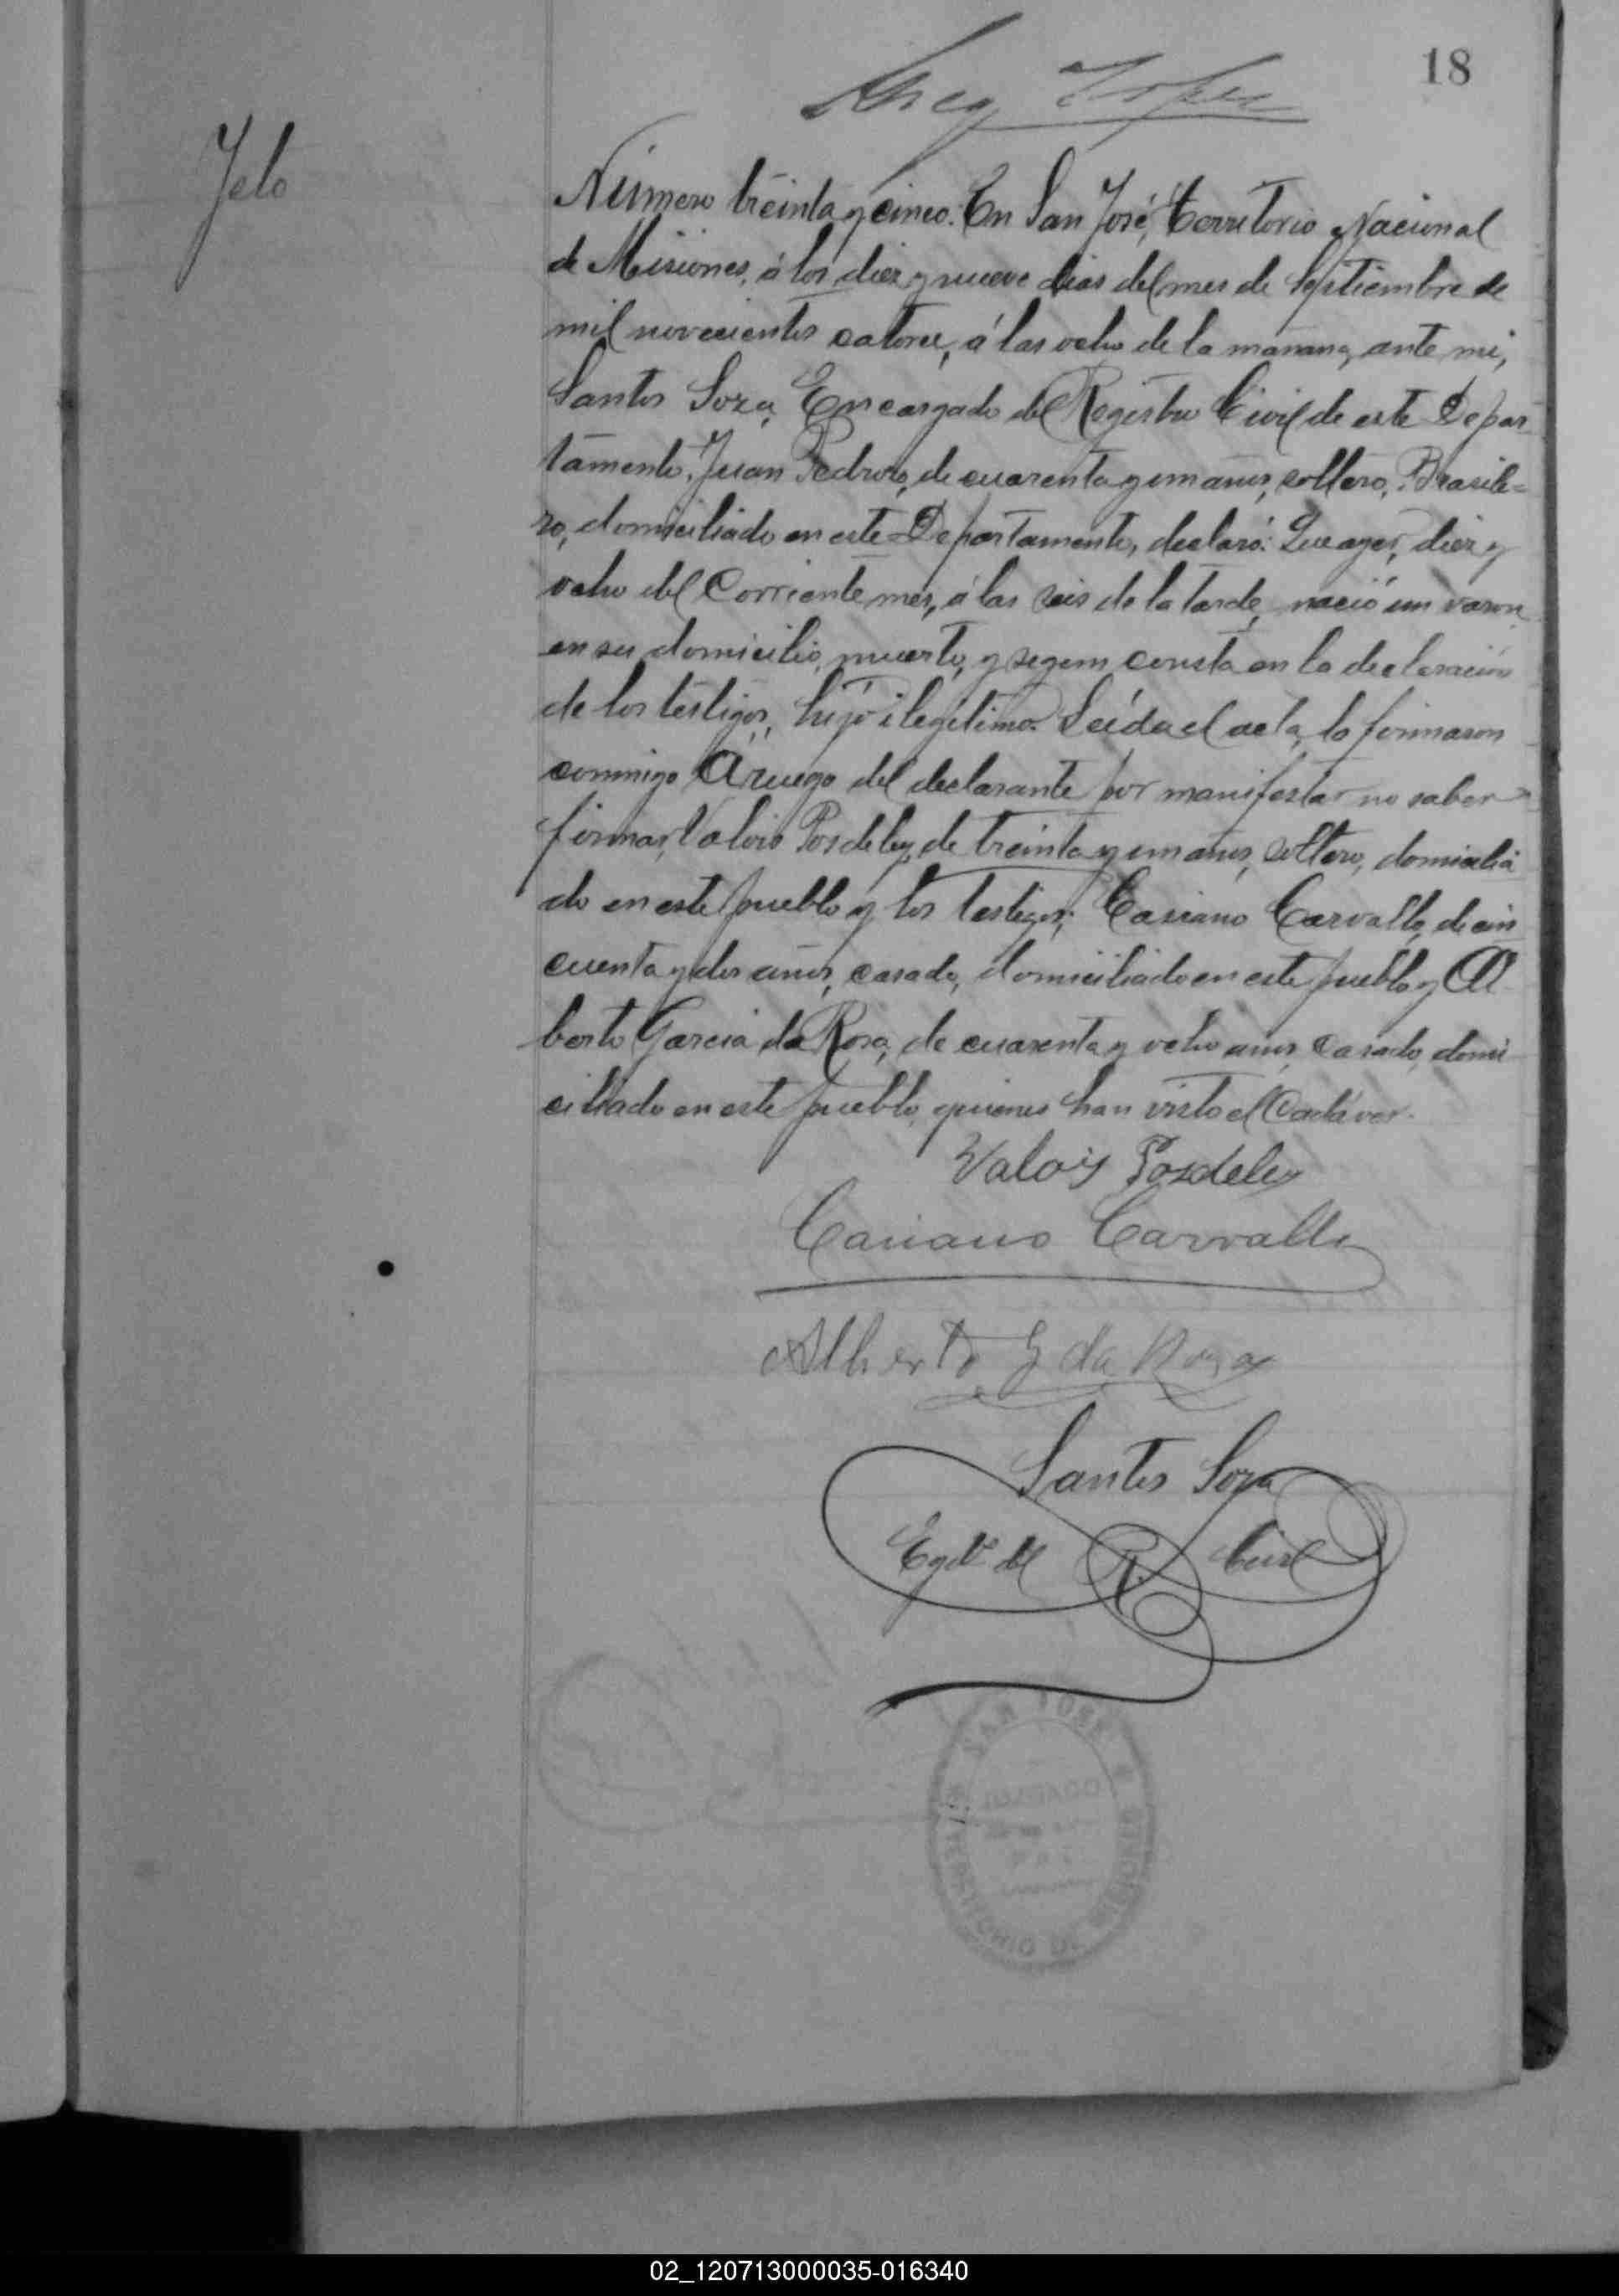 18
Feto
Número treinta y cinco. En San José, Territorio Nacional
de Misiones, á los diez y nueve dias del mes de Septiembre de
mil novecientos catorce, á las ocho de la mañana, ante mi,
Santos Soza, Encargado del Registro Civil de este Depar
tamento, Juan Pedrozo, de cuarenta y un años, soltero, Brasile=
ro, domiciliado en este Departamento, declaró: Que ayer, diez y
ocho del Corriente mes, á las seis de la tarde, nació un varon
en su domicilio, muerto, y segun consta en la declaración
de los testigos, hijo ilegítimo. Leída el acta, la firmaron
conmigo A ruego del declarante por manifestar no saber
firmar, Valois Posdeley, de treinta y un años, soltero, domicilia
do en este pueblo y los testigos; Casiano Carvallo, de cin
cuenta y dos años, casado, domiciliado en este pueblo y Al
berto Garcia da Rosa, de cuarenta y ocho años, casado, domi
ciliado en este pueblo, quienes han visto el Cadáver.
Valois Posdeley
Casiano Carvallo
Alberto G da Rosa
Santos Soza
Egdo del R. Civil
SAN JOSE
TERRITORIO DE MISIONES
02_120713000035-016340